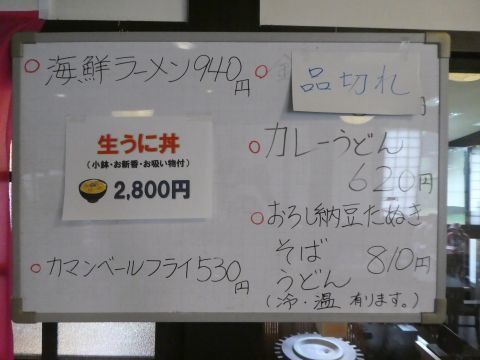 ○海鮮ラーメン940円
生うに丼
(小鉢・お新香・お吸い物付)
2,800円
○カマンベールフライ530円
○
品切れ
○カレーうどん
620円
○おろし納豆たぬき
そば
うどん 810円
(冷・温 有ります。)